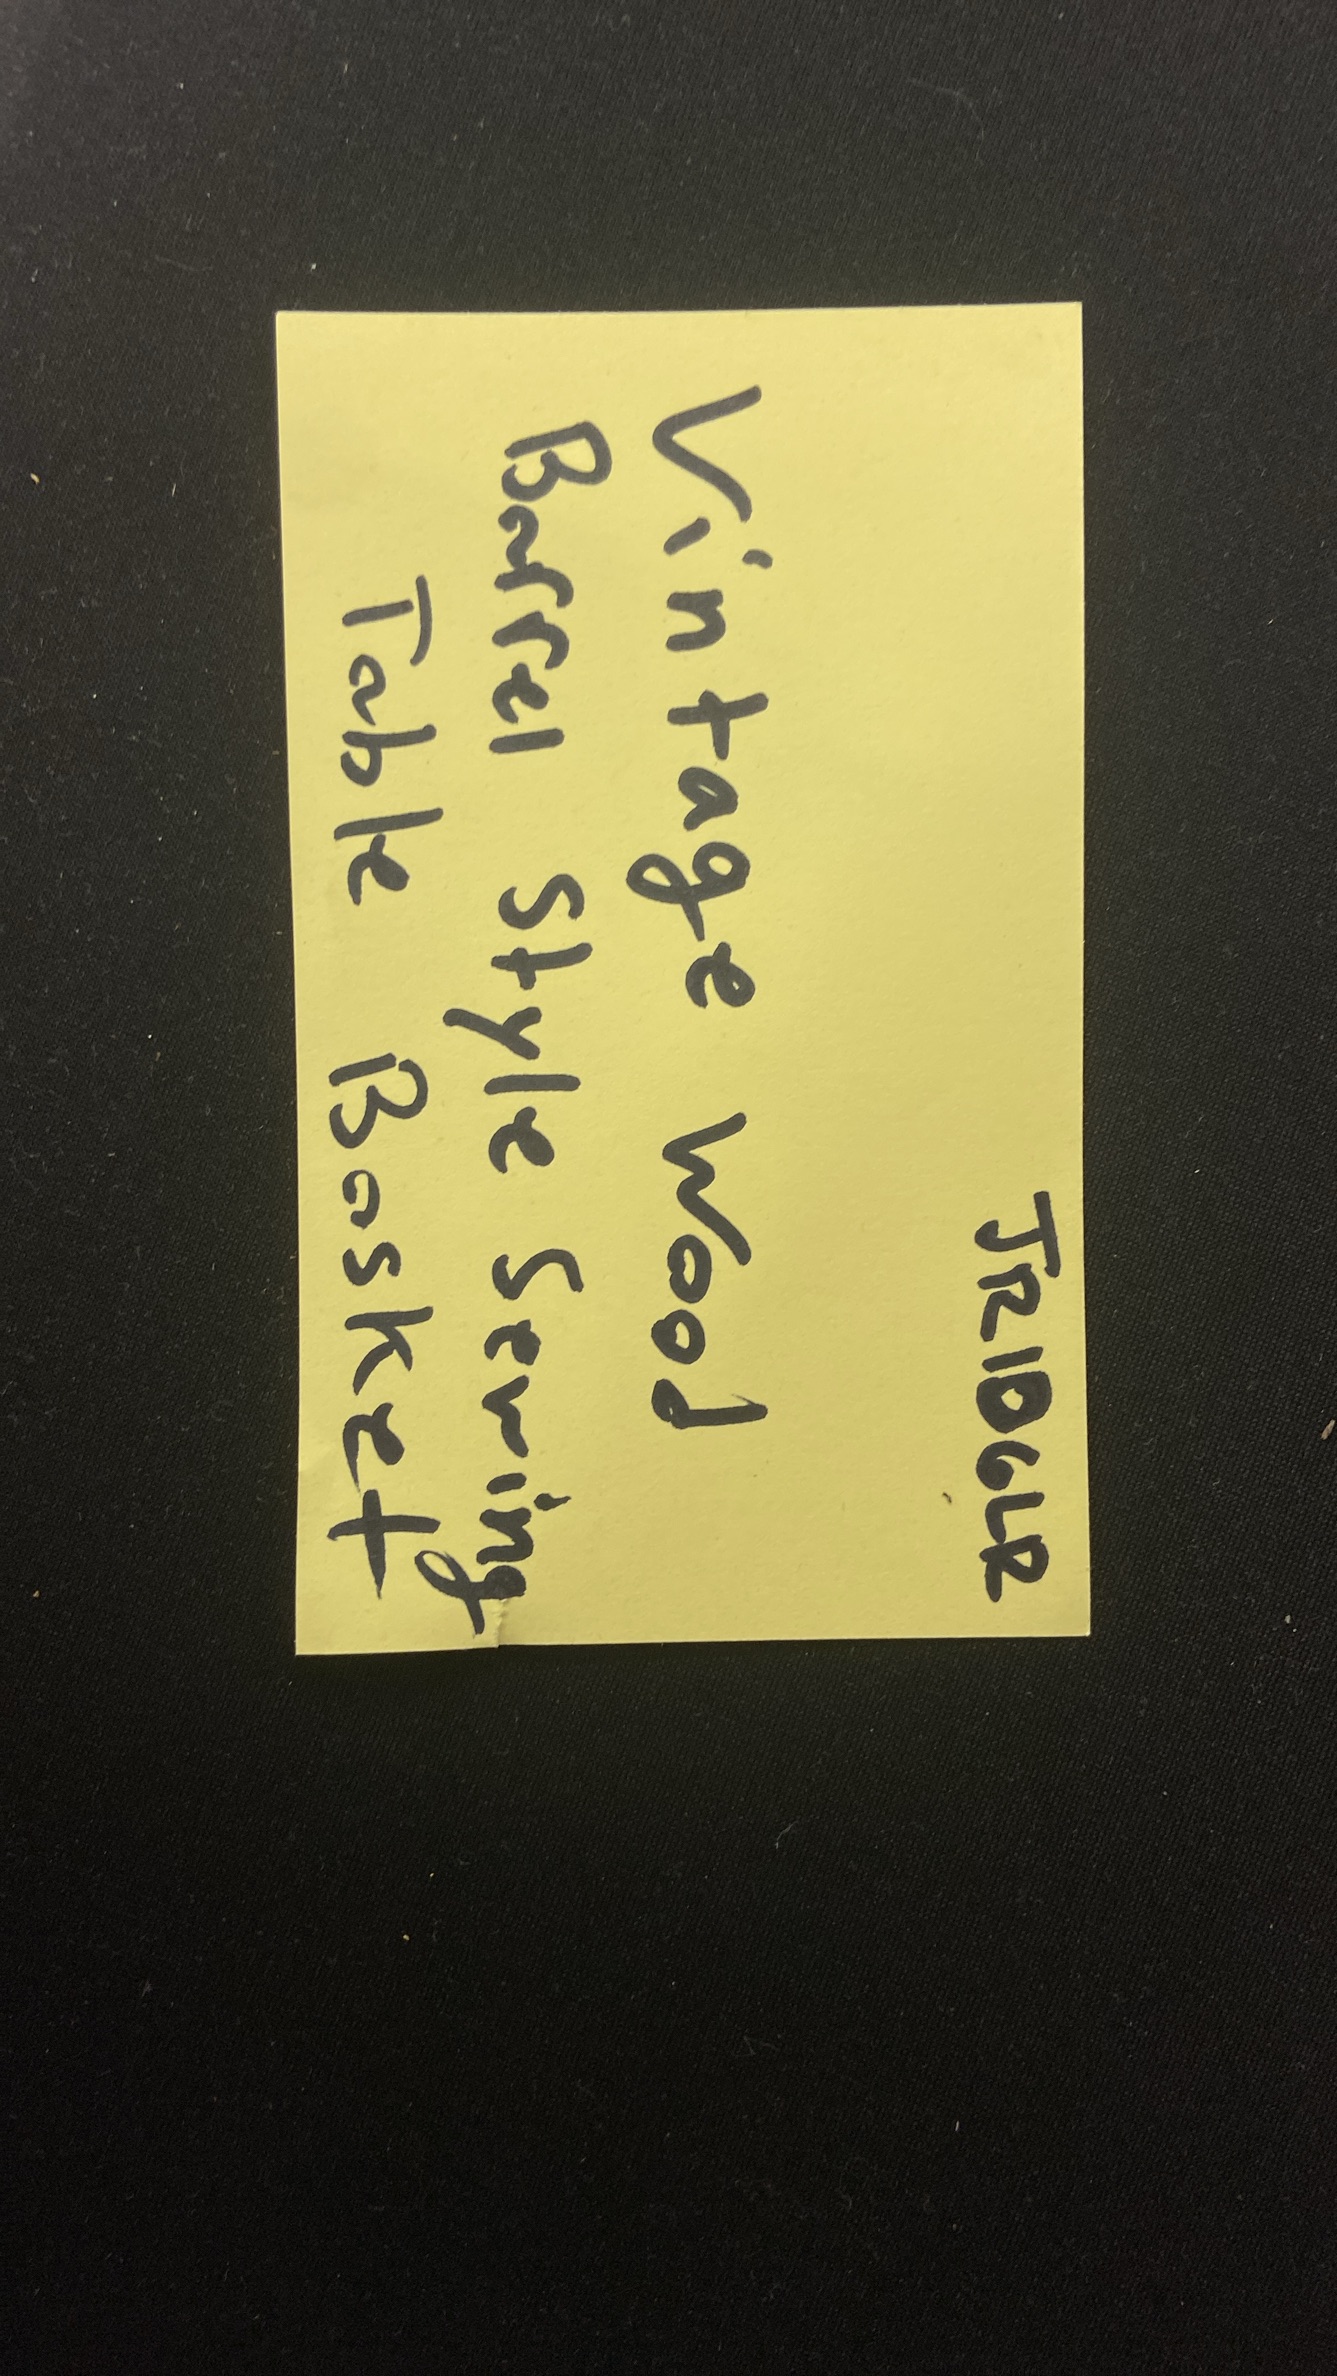 JR106LR
Vintage Wood
Barrel Style Serving
Table Basket